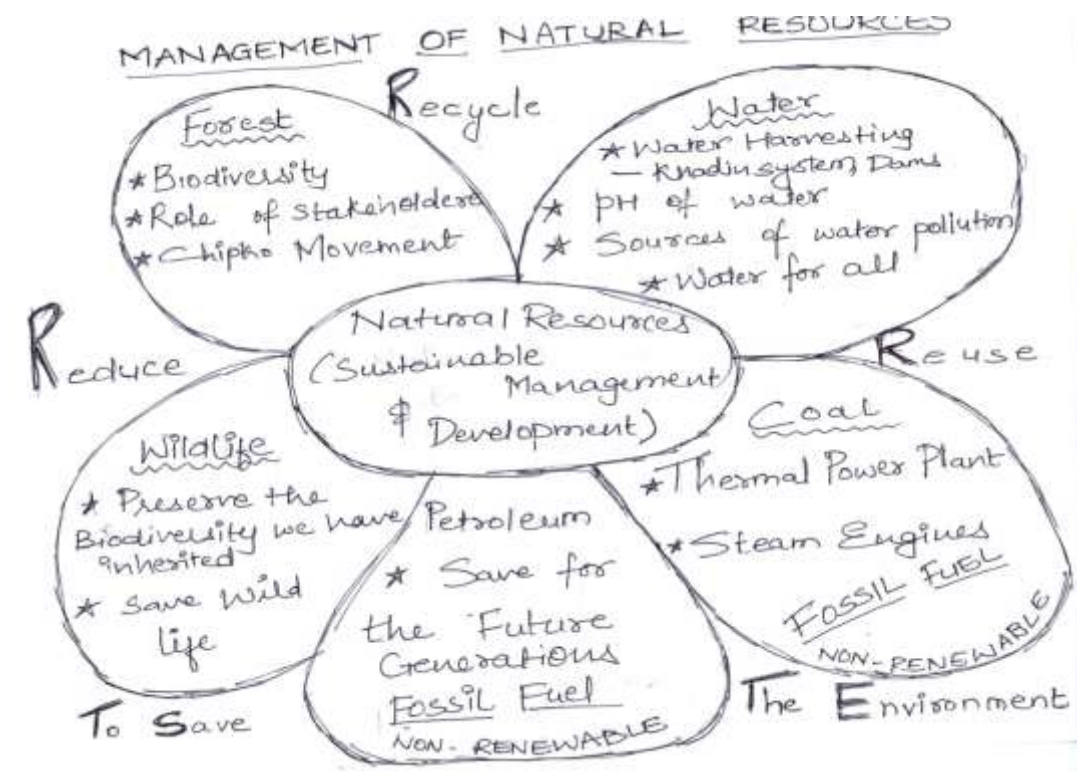 MANAGEMENT OF NATURAL RESOURCES
Recycle
Forest
* Biodiversity
* Role of stakeholders
* Chipko Movement
Water
* Water Harvesting
– Khadin system, Dams
* pH of water
* Sources of water pollution
* Water for all
Reduce
Natural Resources
(Sustainable
Management
& Development)
Reuse
Wildlife
* Preserve the
Biodiversity we have
inherited
* Save Wild
life
Petroleum
* Save for
the Future
Generations
Fossil Fuel
NON-RENEWABLE
Coal
* Thermal Power Plant
* Steam Engines
FOSSIL FUEL
NON-RENEWABLE
To Save
The Environment